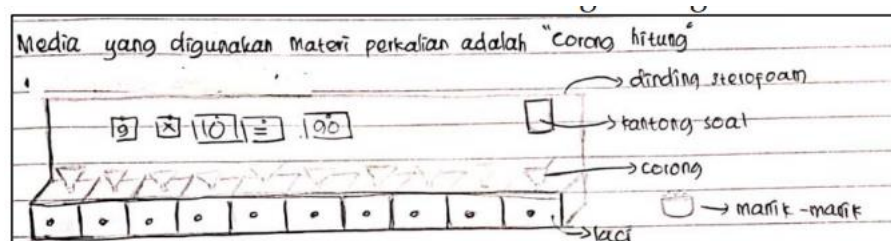 Media yang digunakan materi perkalian adalah "Corong hitung"
dinding sterofoam
9 x 10 = 90
kantong soal
corong
manik-manik
laci